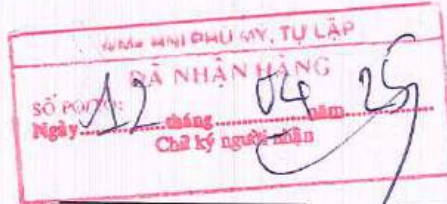 WM+ HNI PHÚ MỸ, TỰ LẬP
ĐÃ NHẬN HÀNG
SỐ PO/TO:
Ngày 12 tháng 04 năm 25
Chữ ký người nhận